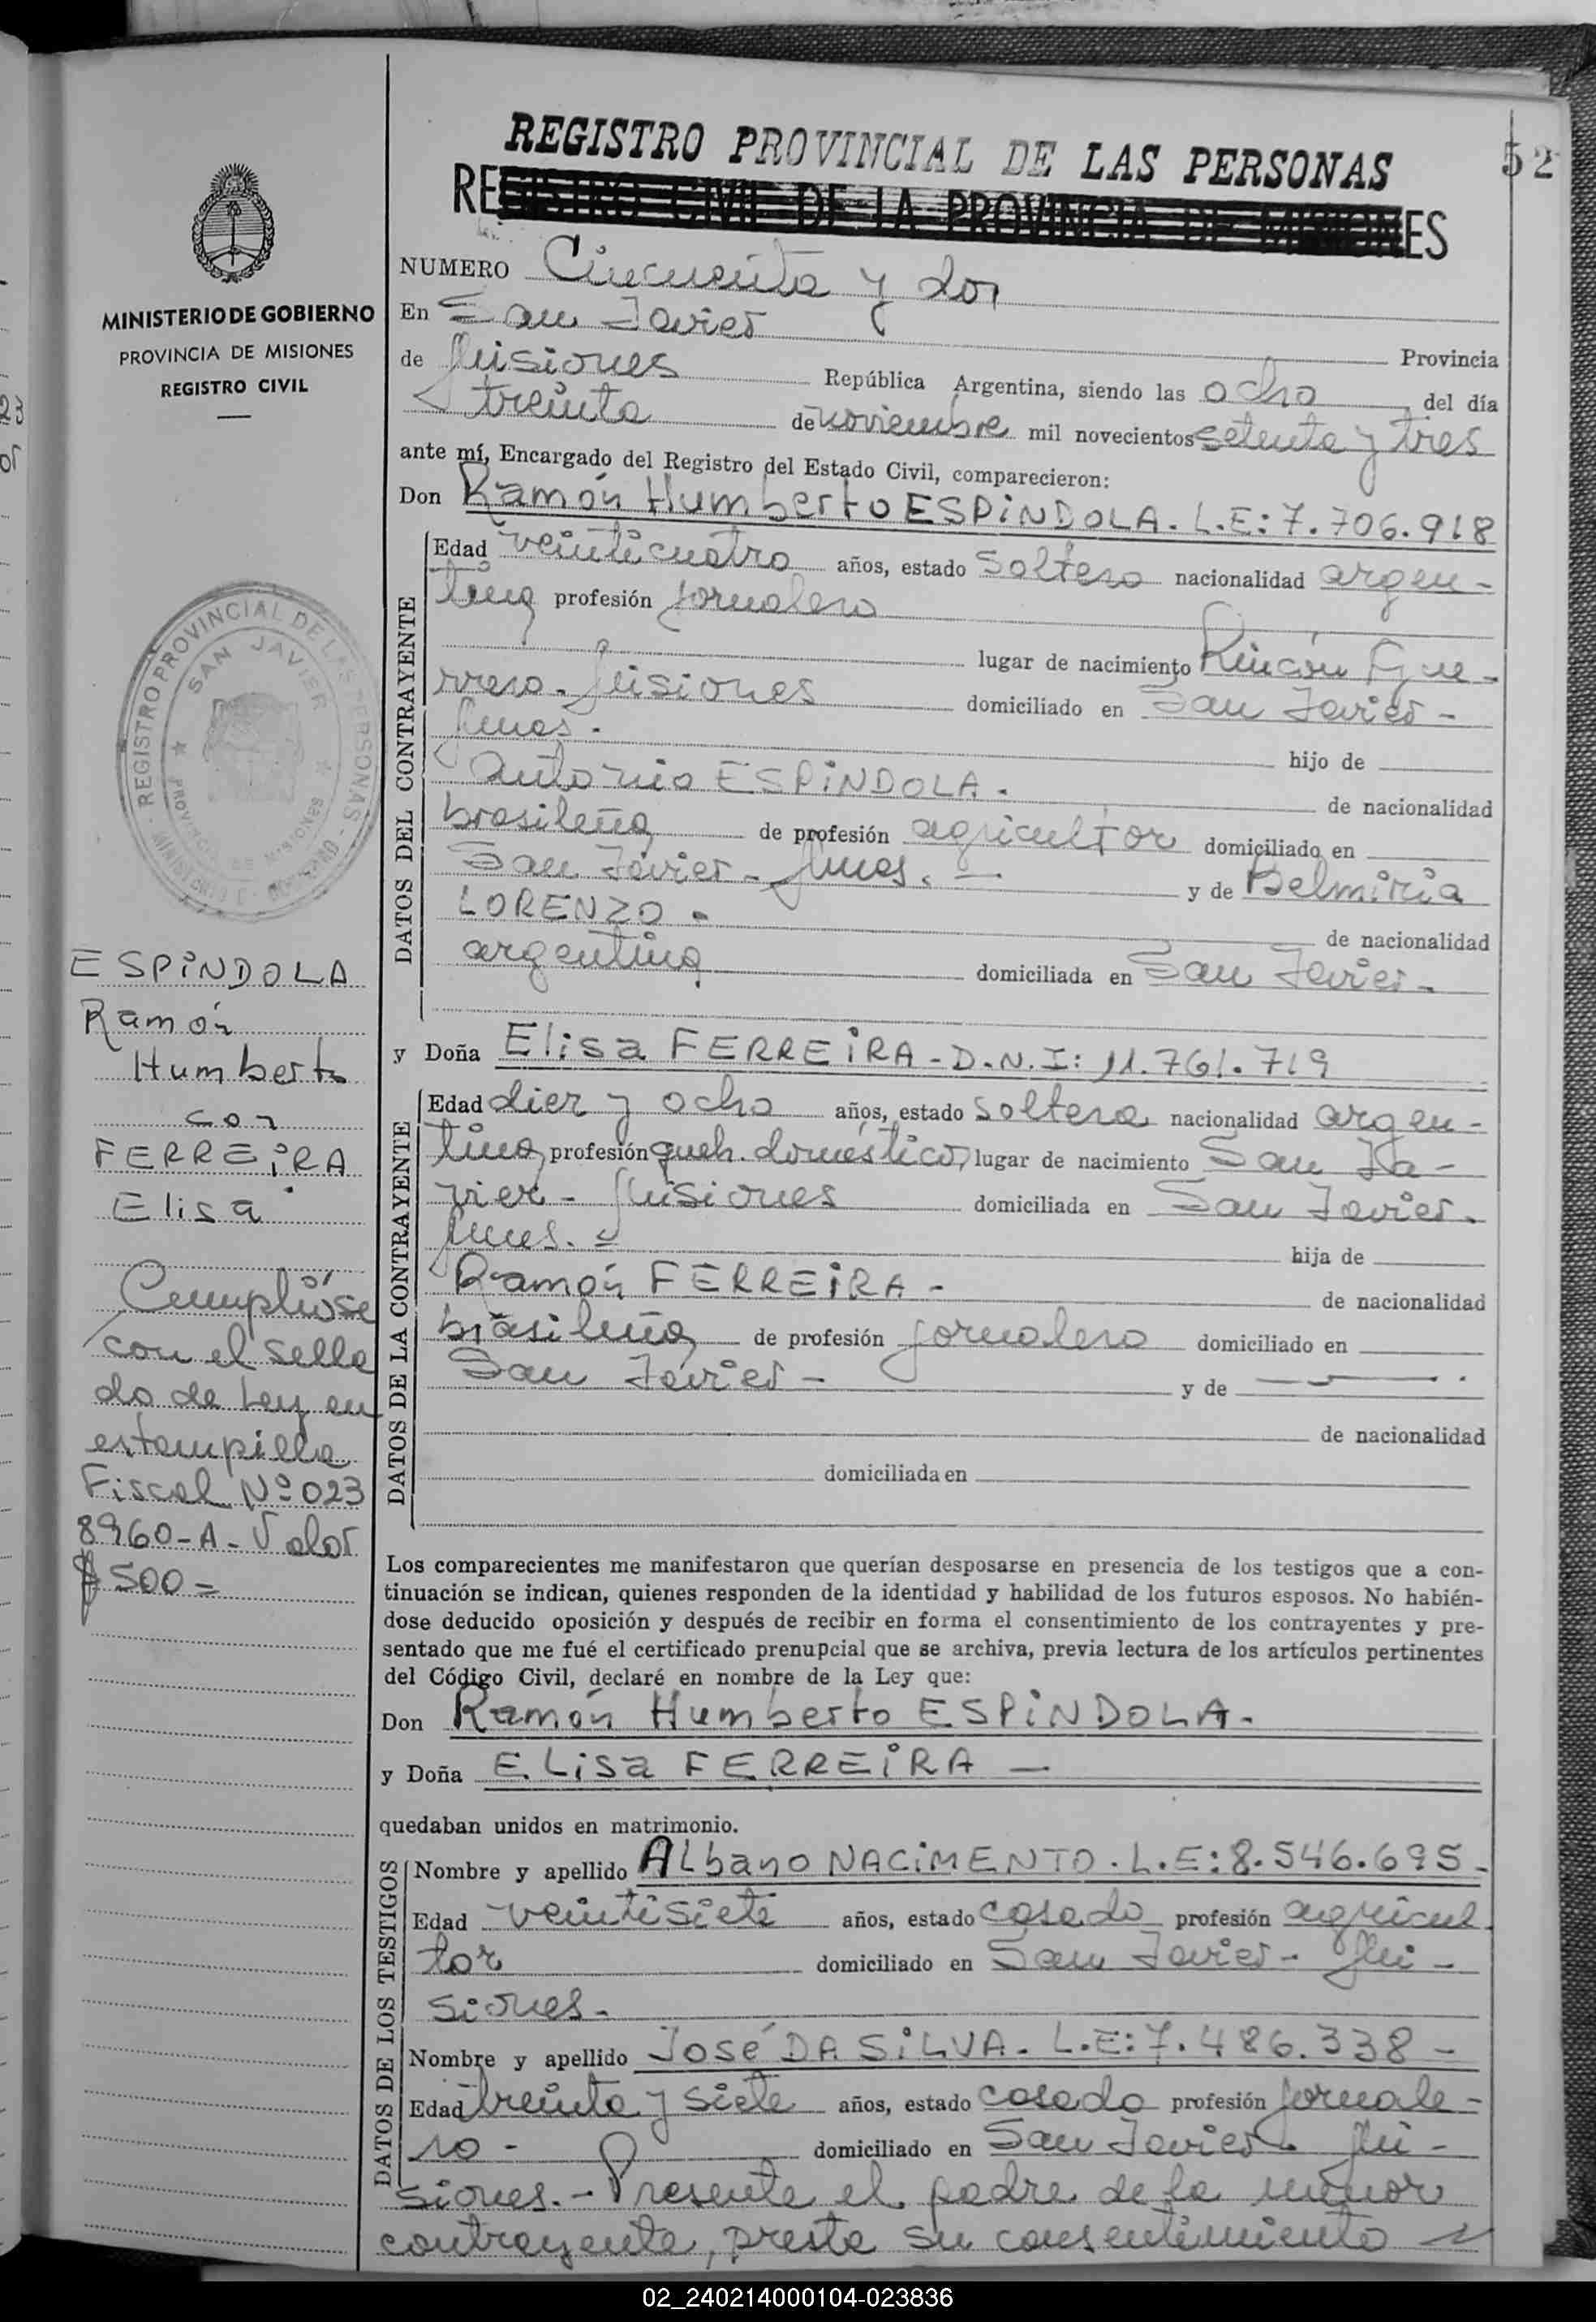 REGISTRO PROVINCIAL DE LAS PERSONAS
52
REGISTRO CIVIL DE LA PROVINCIA DE MISIONES
MINISTERIO DE GOBIERNO
PROVINCIA DE MISIONES
REGISTRO CIVIL
NUMERO Cincuenta y dos
En San Javier Provincia
de Misiones República Argentina, siendo las ocho del día
treinta de noviembre mil novecientos setenta y tres
ante mí, Encargado del Registro del Estado Civil, comparecieron:
Don Ramón Humberto ESPINDOLA. L.E: 7.706.918
DATOS DEL CONTRAYENTE
Edad veinticuatro años, estado soltero nacionalidad argen-
tina profesión jornalero
lugar de nacimiento Rincón Gue-
rrero. Misiones domiciliado en San Javier-
Mnes. hijo de
Antonio ESPINDOLA. de nacionalidad
brasileña de profesión agricultor domiciliado en
San Javier - Mnes. y de Belmiria
LORENZO. de nacionalidad
argentina domiciliada en San Javier.
y Doña Elisa FERREIRA - D.N.I: 11.761.719
DATOS DE LA CONTRAYENTE
Edad diez y ocho años, estado soltera nacionalidad argen-
tina profesión queh. doméstico, lugar de nacimiento San Ja-
vier - Misiones domiciliada en San Javier.
Mnes. hija de
Ramón FERREIRA - de nacionalidad
brasileña de profesión jornalero domiciliado en
San Javier - y de
de nacionalidad
domiciliada en
REGISTRO PROVINCIAL DE LAS PERSONAS
SAN JAVIER
PROVINCIA DE MISIONES
MINISTERIO DE GOBIERNO
ESPINDOLA
Ramón
Humberto
con
FERREIRA
Elisa
Cumplióse
con el sella
do de Ley en
estampilla
Fiscal Nº 023
8960-A- Valor
$ 500=
Los comparecientes me manifestaron que querían desposarse en presencia de los testigos que a con-
tinuación se indican, quienes responden de la identidad y habilidad de los futuros esposos. No habién-
dose deducido oposición y después de recibir en forma el consentimiento de los contrayentes y pre-
sentado que me fué el certificado prenupcial que se archiva, previa lectura de los artículos pertinentes
del Código Civil, declaré en nombre de la Ley que:
Don Ramón Humberto ESPINDOLA.
y Doña ELisa FERREIRA —
quedaban unidos en matrimonio.
DATOS DE LOS TESTIGOS
Nombre y apellido ALbano NACIMENTO. L.E: 8.546.695-
Edad veintisiete años, estado casado profesión agricul
tor domiciliado en San Javier - Mi-
siones.
Nombre y apellido José DA SILVA. L.E: 7.486.338 -
Edad treinta y siete años, estado casado profesión jornale-
ro - domiciliado en San Javier. Mi-
siones. - Presente el padre de la menor
contrayente, presta su consentimiento
02_240214000104-023836